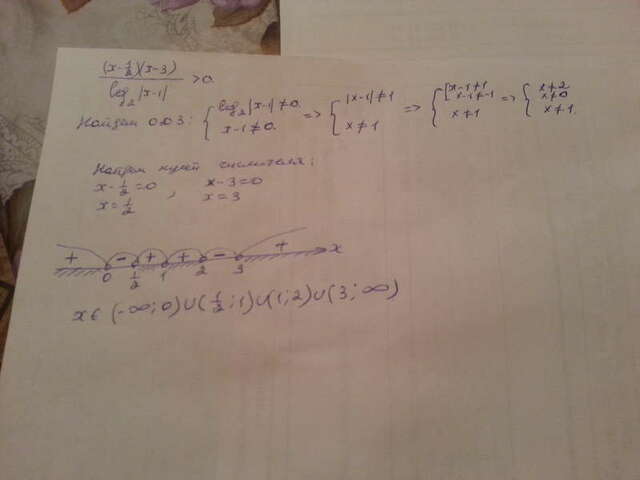 (x-1/2)(x-3) / log₂|x-1| > 0
Найдем ОДЗ: { log₂|x-1| ≠ 0 x-1 ≠ 0 => { |x-1| ≠ 1 x ≠ 1 => { [ x-1 ≠ 1 x-1 ≠ -1 x ≠ 1 => { x ≠ 2 x ≠ 0 x ≠ 1.
Найдем нули числителя:
x - 1/2 = 0 , x - 3 = 0
x = 1/2 x = 3
+ - + + - + x
0 1/2 1 2 3
x ∈ (-∞; 0) ∪ (1/2; 1) ∪ (1; 2) ∪ (3; ∞)